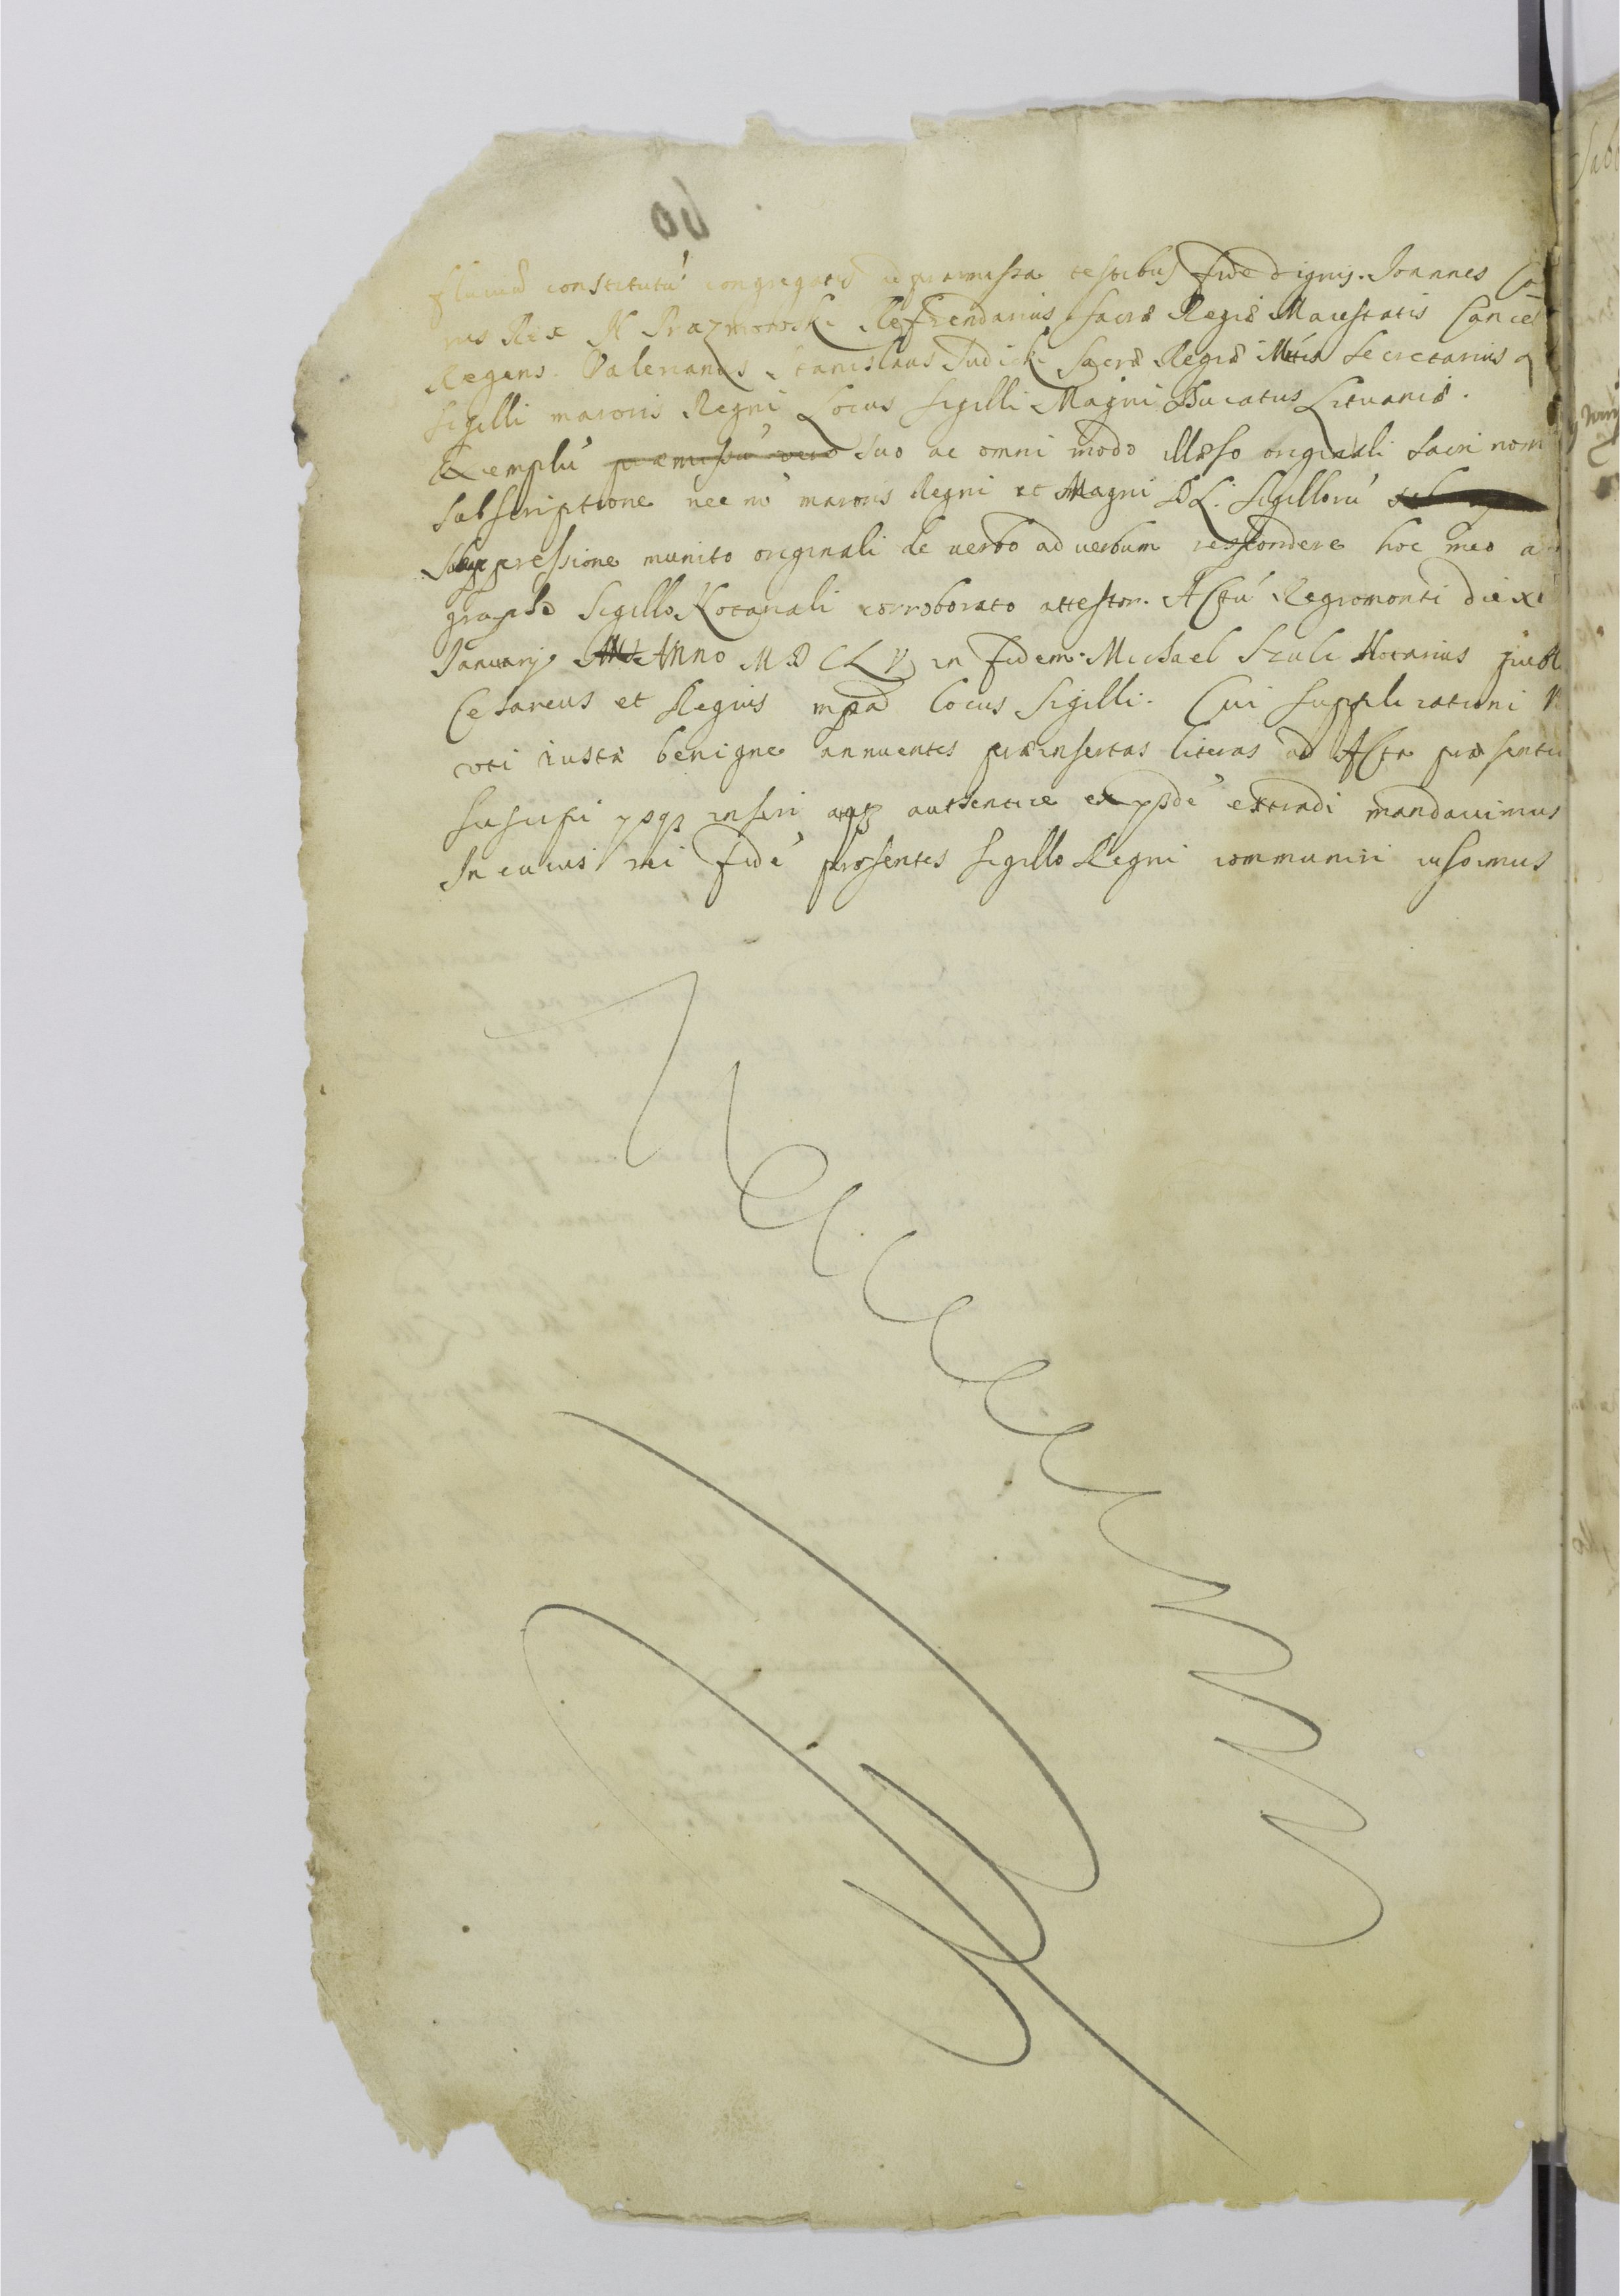 constitutũ congregatis ad praemissa testibus fide dignis. Joannes Ca-
rus Rex N Prazmowski Referendarius Sacrae Regiae Maiestatis Cancel
Regens. Valerianus Stanislaus Judicki Sacrae Regiae Mttis Secretarius
Sigilli maioris Regni Locus Sigilli Magni Ducatus Lituaniae.
Exemplũ suo ac omni modo illaeso originali Sacri nom
Subscriptione nec nõ maioris Regni et Magni D L. Sigillorũ
Suppressione munito originali de verbo ad verbum respondere hoc meo
grapho Sigillo Notariali corroborato attestor. Actũ Regiomonti die xi
January Anno MDCLV in fidem. Michael Szulc Notarius publ
Cesareus et Regius mpa Locus Sigilli. Cui supplicationi
uti iustae benigne annuentes praeinsertas literas ad Acta praesentia
suscipi inseri atqz authentice extradi mandavimus
In cuius rei fidẽ praesentes Sigillo Regni communiri iussimus